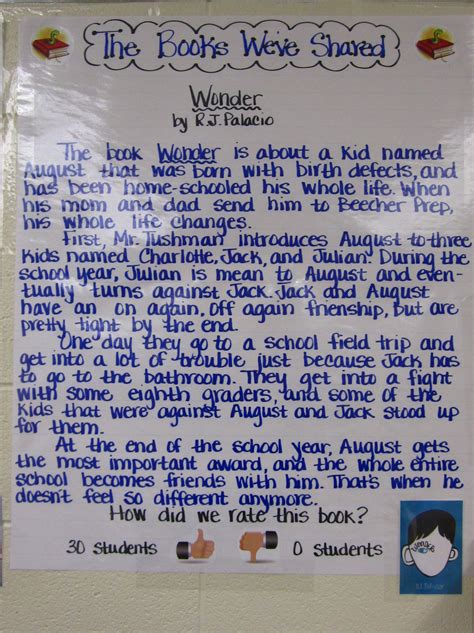 The Books We've Shared
Wonder
by R.J. Palacio
The book Wonder is about a kid named
August that was born with birth defects, and
has been home-schooled his whole life. When
his mom and dad send him to Beecher Prep,
his whole life changes.
First, Mr. Tushman introduces August to three
kids named Charlotte, Jack, and Julian. During the
school year, Julian is mean to August and even-
tually turns against Jack. Jack and August
have an on again, off again frienship, but are
pretty tight by the end.
One day they go to a school field trip and
get into a lot of trouble just because Jack has
to go to the bathroom. They get into a fight
with some eighth graders, and some of the
kids that were against August and Jack stood up
for them.
At the end of the school year, August gets
the most important award, and the whole entire
school becomes friends with him. That's when he
doesn't feel so different anymore.
How did we rate this book?
30 students
0 students
Wonder